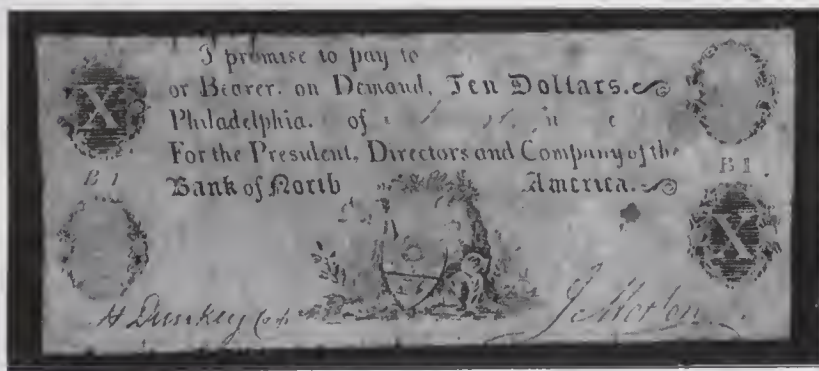 I promise to pay to
or Bearer. on Demand, Ten Dollars.
Philadelphia. of
For the President, Directors and Company of the
Bank of North America.
X
B 1
B 1
X
H Drinker